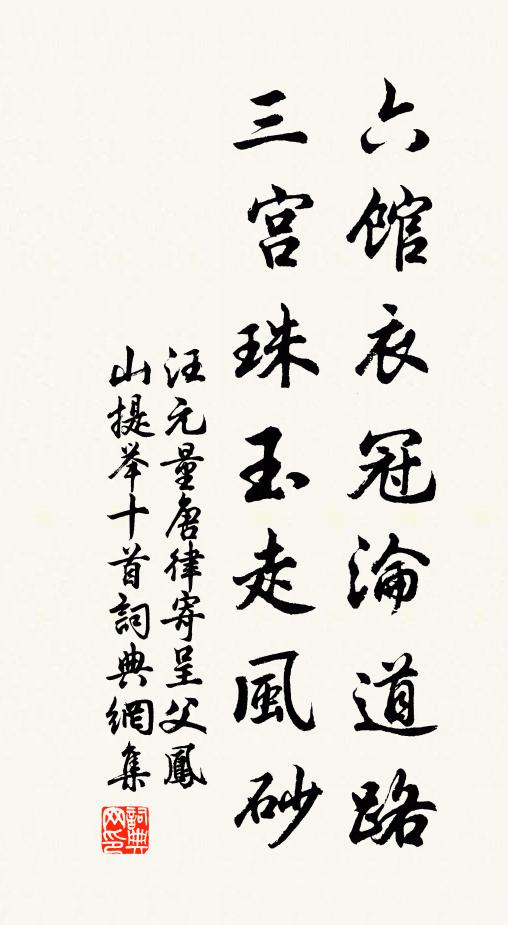 六馆衣冠淪道路
三宫珠玉走風砂
汪元量唐律寄呈父鳳
山提举十首詞典網集
詞典网印